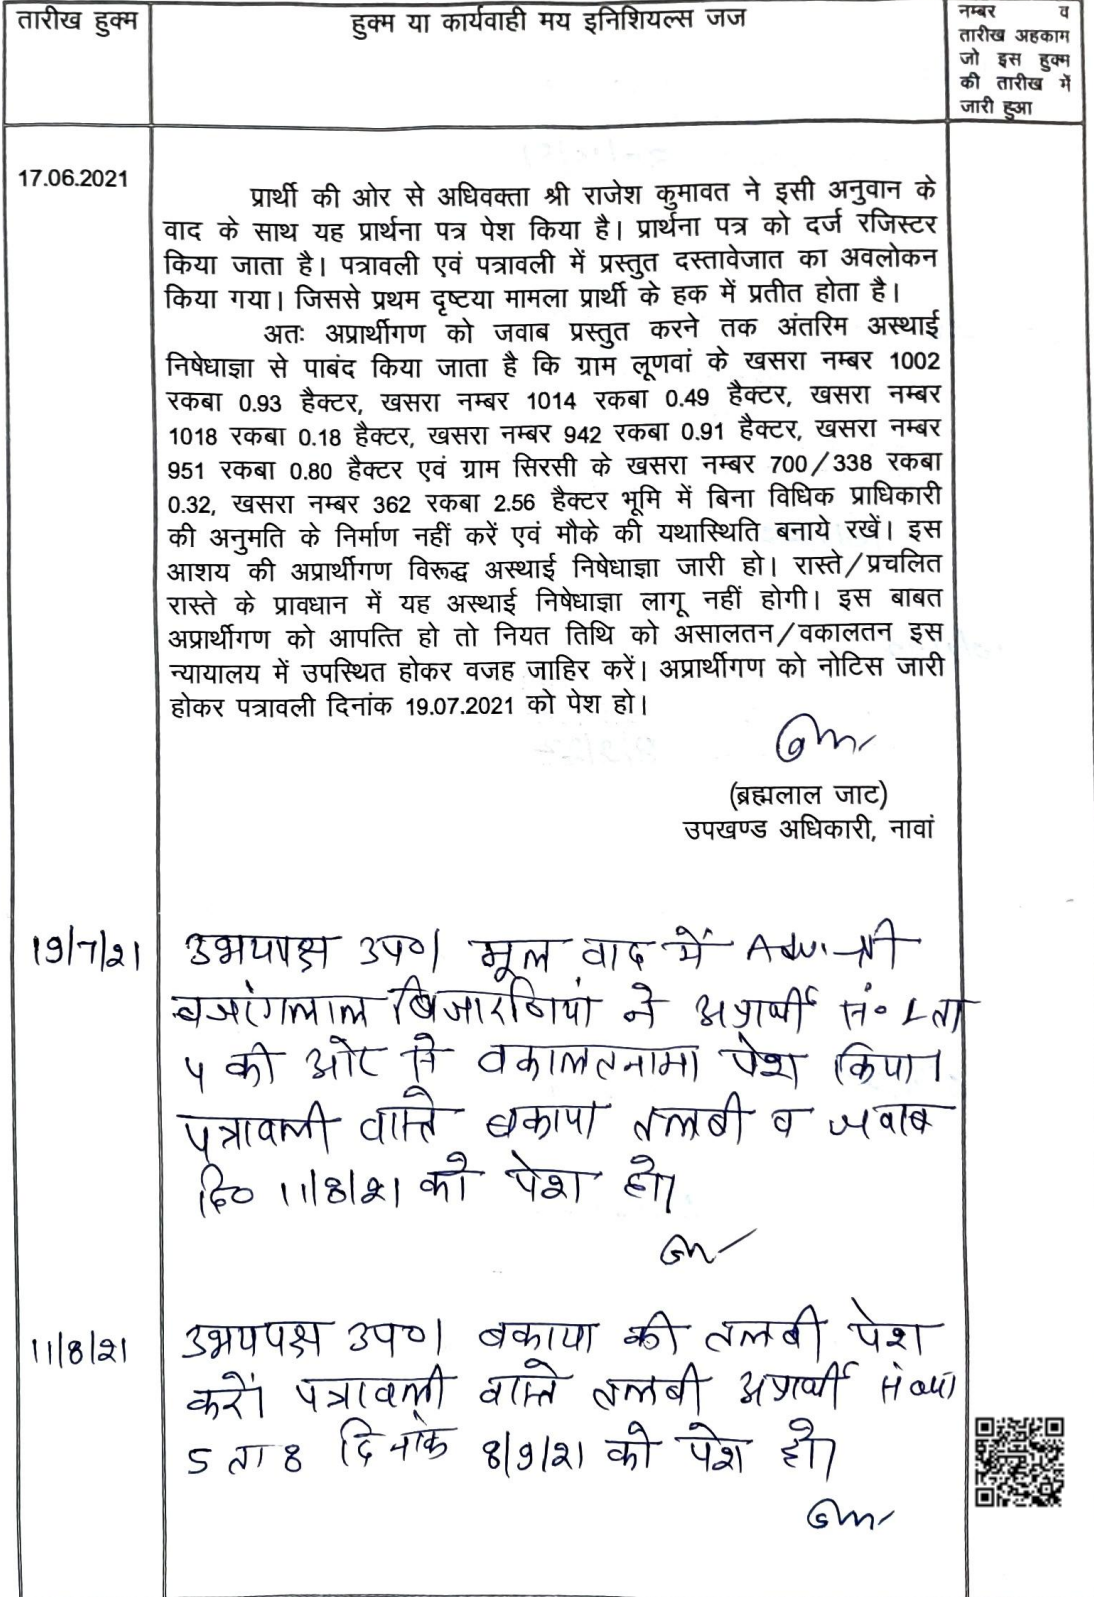 तारीख हुक्म
हुक्म या कार्यवाही मय इनिशियल्स जज
नम्बर व
तारीख अहकाम
जो इस हुक्म
की तारीख में
जारी हुआ
17.06.2021
प्रार्थी की ओर से अधिवक्ता श्री राजेश कुमावत ने इसी अनुवान के
वाद के साथ यह प्रार्थना पत्र पेश किया है। प्रार्थना पत्र को दर्ज रजिस्टर
किया जाता है। पत्रावली एवं पत्रावली में प्रस्तुत दस्तावेजात का अवलोकन
किया गया। जिससे प्रथम दृष्टया मामला प्रार्थी के हक में प्रतीत होता है।
अतः अप्रार्थीगण को जवाब प्रस्तुत करने तक अंतरिम अस्थाई
निषेधाज्ञा से पाबंद किया जाता है कि ग्राम लूणवां के खसरा नम्बर 1002
रकबा 0.93 हैक्टर, खसरा नम्बर 1014 रकबा 0.49 हैक्टर, खसरा नम्बर
1018 रकबा 0.18 हैक्टर, खसरा नम्बर 942 रकबा 0.91 हैक्टर, खसरा नम्बर
951 रकबा 0.80 हैक्टर एवं ग्राम सिरसी के खसरा नम्बर 700/338 रकबा
0.32, खसरा नम्बर 362 रकबा 2.56 हैक्टर भूमि में बिना विधिक प्राधिकारी
की अनुमति के निर्माण नहीं करें एवं मौके की यथास्थिति बनाये रखें। इस
आशय की अप्रार्थीगण विरूद्ध अस्थाई निषेधाज्ञा जारी हो। रास्ते/प्रचलित
रास्ते के प्रावधान में यह अस्थाई निषेधाज्ञा लागू नहीं होगी। इस बाबत
अप्रार्थीगण को आपत्ति हो तो नियत तिथि को असालतन/वकालतन इस
न्यायालय में उपस्थित होकर वजह जाहिर करें। अप्रार्थीगण को नोटिस जारी
होकर पत्रावली दिनांक 19.07.2021 को पेश हो।
(ब्रह्मलाल जाट)
उपखण्ड अधिकारी, नावां
19/7/21
उभयपक्ष उप०। मूल वाद में Adv. श्री
बजरंगलाल बिजारणियां ने अप्रार्थी सं० 1 ता
4 की ओर से वकालतनामा पेश किया।
पत्रावली वास्ते बकाया तलबी व जवाब
दि० 11/8/21 को पेश हो।
11/8/21
उभयपक्ष उप०। बकाया की तलबी पेश
करें। पत्रावली वास्ते तलबी अप्रार्थी संख्या
5 ता 8 दिनांक 8/9/21 को पेश हो।